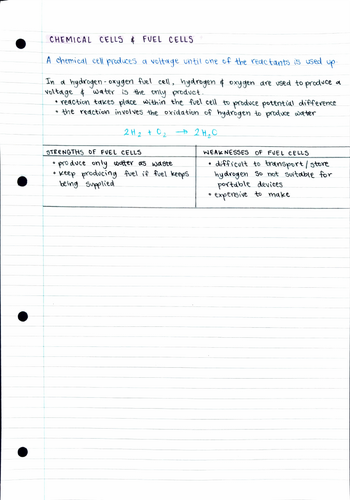 CHEMICAL CELLS & FUEL CELLS
A chemical cell produces a voltage until one of the reactants is used up.
In a hydrogen-oxygen fuel cell, hydrogen & oxygen are used to produce a
voltage & water is the only product.
• reaction takes place within the fuel cell to produce potential difference
• the reaction involves the oxidation of hydrogen to produce water
2H₂ + O₂ → 2H₂O
STRENGTHS OF FUEL CELLS
• produce only water as waste
• keep producing fuel if fuel keeps
being supplied
WEAKNESSES OF FUEL CELLS
• difficult to transport/store
hydrogen so not suitable for
portable devices
• expensive to make